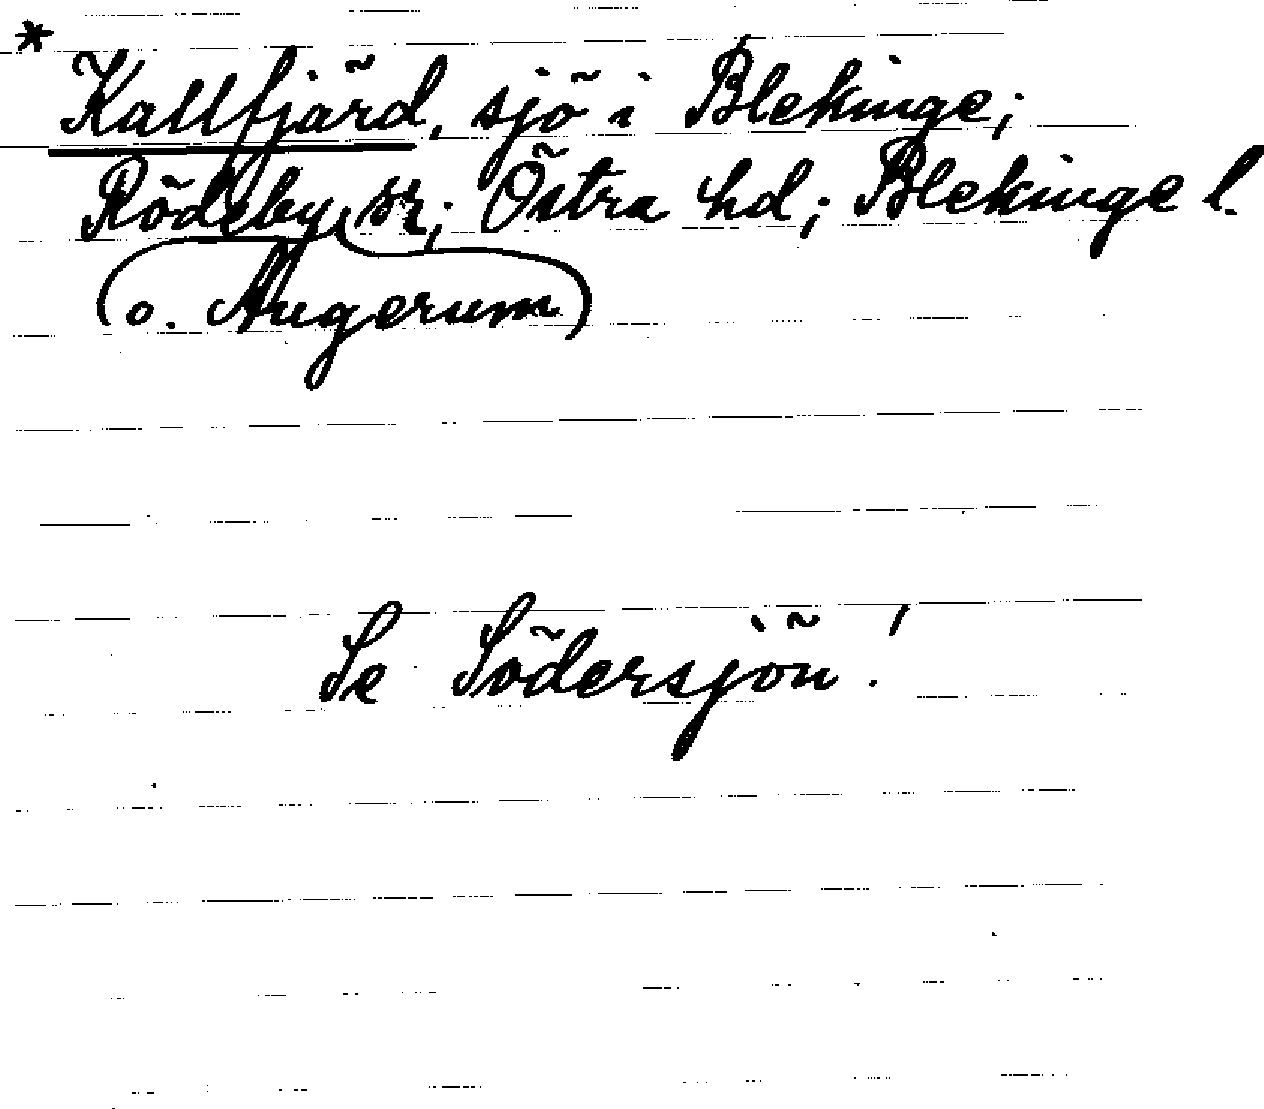 * Kallfjärd, sjö i Blekinge;
Rödeby sn; Östra hd; Blekinge l.
(o. Augerum)
Se Södersjön!